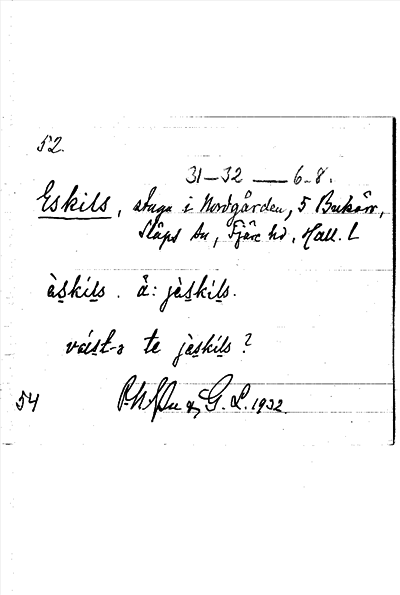 52.
31–32 — 6–8.
Eskils, stuga i Nordgården, 5 Bukärr,
Släps sn, Fjäre hd, Hall. l
èskils. ä: jèskils.
váist-ə te jèskils?
54 G. L. 1932.